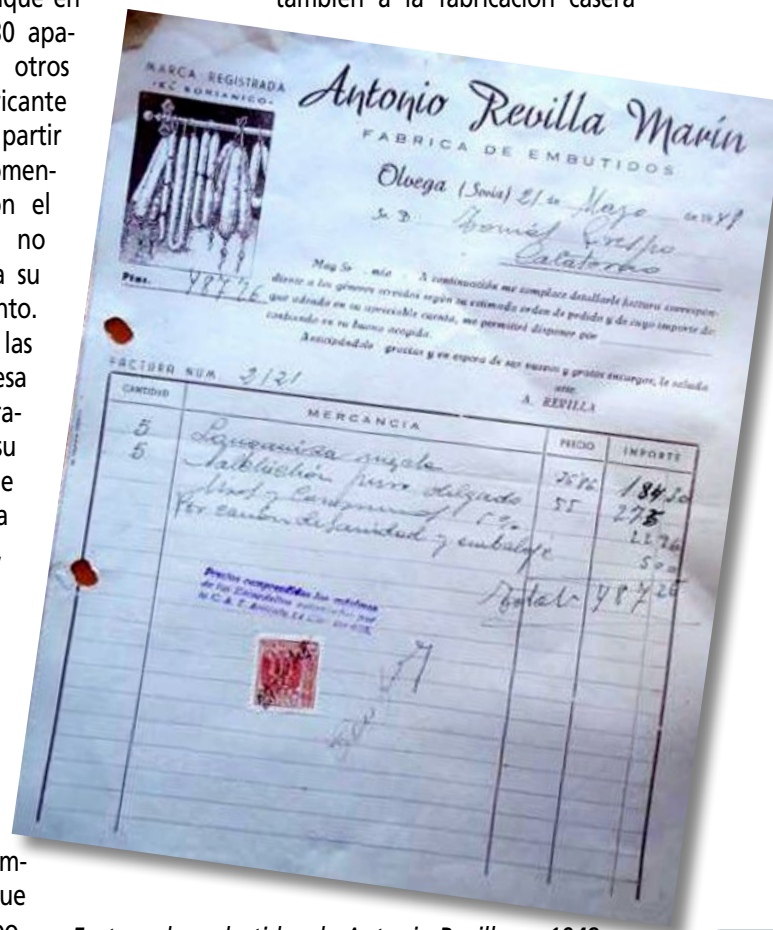 también a la fabricación casera
que en
30 apa-
otros
ricante
partir
omen-
on el
no
a su
nto.
las
esa
ra-
su
e
a
m-
ue
MARCA REGISTRADA
"EL SORIANICO"
Antonio Revilla Marín
FABRICA DE EMBUTIDOS
Olvega (Soria) 21 de Mayo de 194
Sr. D. Tomás Crespo
Calatorao
Muy Sr. mío: A continuación me complace detallarle factura correspon-
diente a los géneros servidos según su estimada orden de pedido y de cuyo importe de
que adeudo en su apreciable cuenta, me permitiré disponer por
confiando en su buena acogida.
Anticipándole gracias y en espera de sus nuevos y gratos encargos, le saluda
atte.
A. REVILLA
Ptas. 487'26
FACTURA NUM. 2121
CANTIDAD MERCANCIA PRECIO IMPORTE
5 Longaniza 184
5 Salchichón puro delgado 55 275
Usos y Consumos 5%
Por canon de sanidad y embalaje 5
Total 487 26
Precios comprendidos los máximos
de los Escandallos autorizados por
la C. A. T.
Factura de embutidos de Antonio Revilla 1949